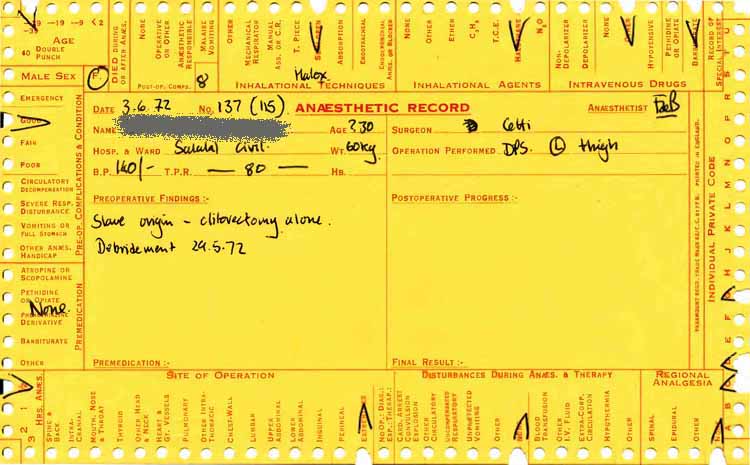 -39 -19 -9 <2
AGE
40 DOUBLE PUNCH
MALE SEX F.
DIED DURING OR AFTER ANÆS.
NONE
OPERATIVE OR OTHER
ANÆSTHETIC RESPONSIBLE
MALAISE VOMITING
POST-OP. COMPS. 8
OTHER
MECHANICAL RESPIRATOR
MANUAL ASS. OR C.R.
T. PIECE
ABSORPTION
ENDOTRACHEAL
ENDOBRONCHIAL ANÆS. OR BLOCKER
Halox.
INHALATIONAL TECHNIQUES
NONE
OTHER
ETHER
C3H6
T.C.E.
N2O
INHALATIONAL AGENTS
NON-DEPOLARIZER
DEPOLARIZER
NONE
HYPOTENSIVE
PETHIDINE OR OPIATE
INTRAVENOUS DRUGS
RECORD OF SPECIAL INTEREST
DATE 3.6.72 No. 137 (115) ANÆSTHETIC RECORD ANÆSTHETIST
NAME AGE ?30 SURGEON Cetti
HOSP. & WARD Salalal Civil. WT. 60kg. OPERATION PERFORMED DPS. (L) thigh
B.P. 140/- T.P.R. — 80 — HB.
PREOPERATIVE FINDINGS :- POSTOPERATIVE PROGRESS :-
Slave origin - clitorectomy alone.
Debridement 29.5.72
PREMEDICATION :- FINAL RESULT :-
EMERGENCY
GOOD
FAIR
POOR
CIRCULATORY DECOMPENSATION
SEVERE RESP. DISTURBANCE
VOMITING OR FULL STOMACH
OTHER ANÆS. HANDICAP
PRE-OP. COMPLICATIONS & CONDITION
ATROPINE OR SCOPOLAMINE
PETHIDINE OR OPIATE
None.
DERIVATIVE
BARBITURATE
OTHER
PREMEDICATION
INDIVIDUAL PRIVATE CODE
PRINTED IN ENGLAND.
HRS. ANÆS.
3 2 1
SITE OF OPERATION
SPINE & BACK
INTRA-CRANIAL
MOUTH, NOSE & THROAT
THYROID
OTHER HEAD & NECK
HEART & GT. VESSELS
PULMONARY
OTHER INTRA-THORACIC
CHEST-WALL
LUMBAR
UPPER ABDOMINAL
LOWER ABDOMINAL
INGUINAL
PERINEAL
DISTURBANCES DURING ANÆS. & THERAPY
NON-OP. DIAG. EXP. THERAP.
CARD. ARREST CONVULSION EXPLOSION
OTHER CIRCULATORY
UNEXPECTED RESPIRATORY
UNEXPECTED VOMITING
OTHER
BLOOD TRANSFUSION
OTHER I.V. FLUID
EXTRA-CORP. CIRCULATION
HYPOTHERMIA
OTHER
REGIONAL ANALGESIA
SPINAL
EPIDURAL
OTHER